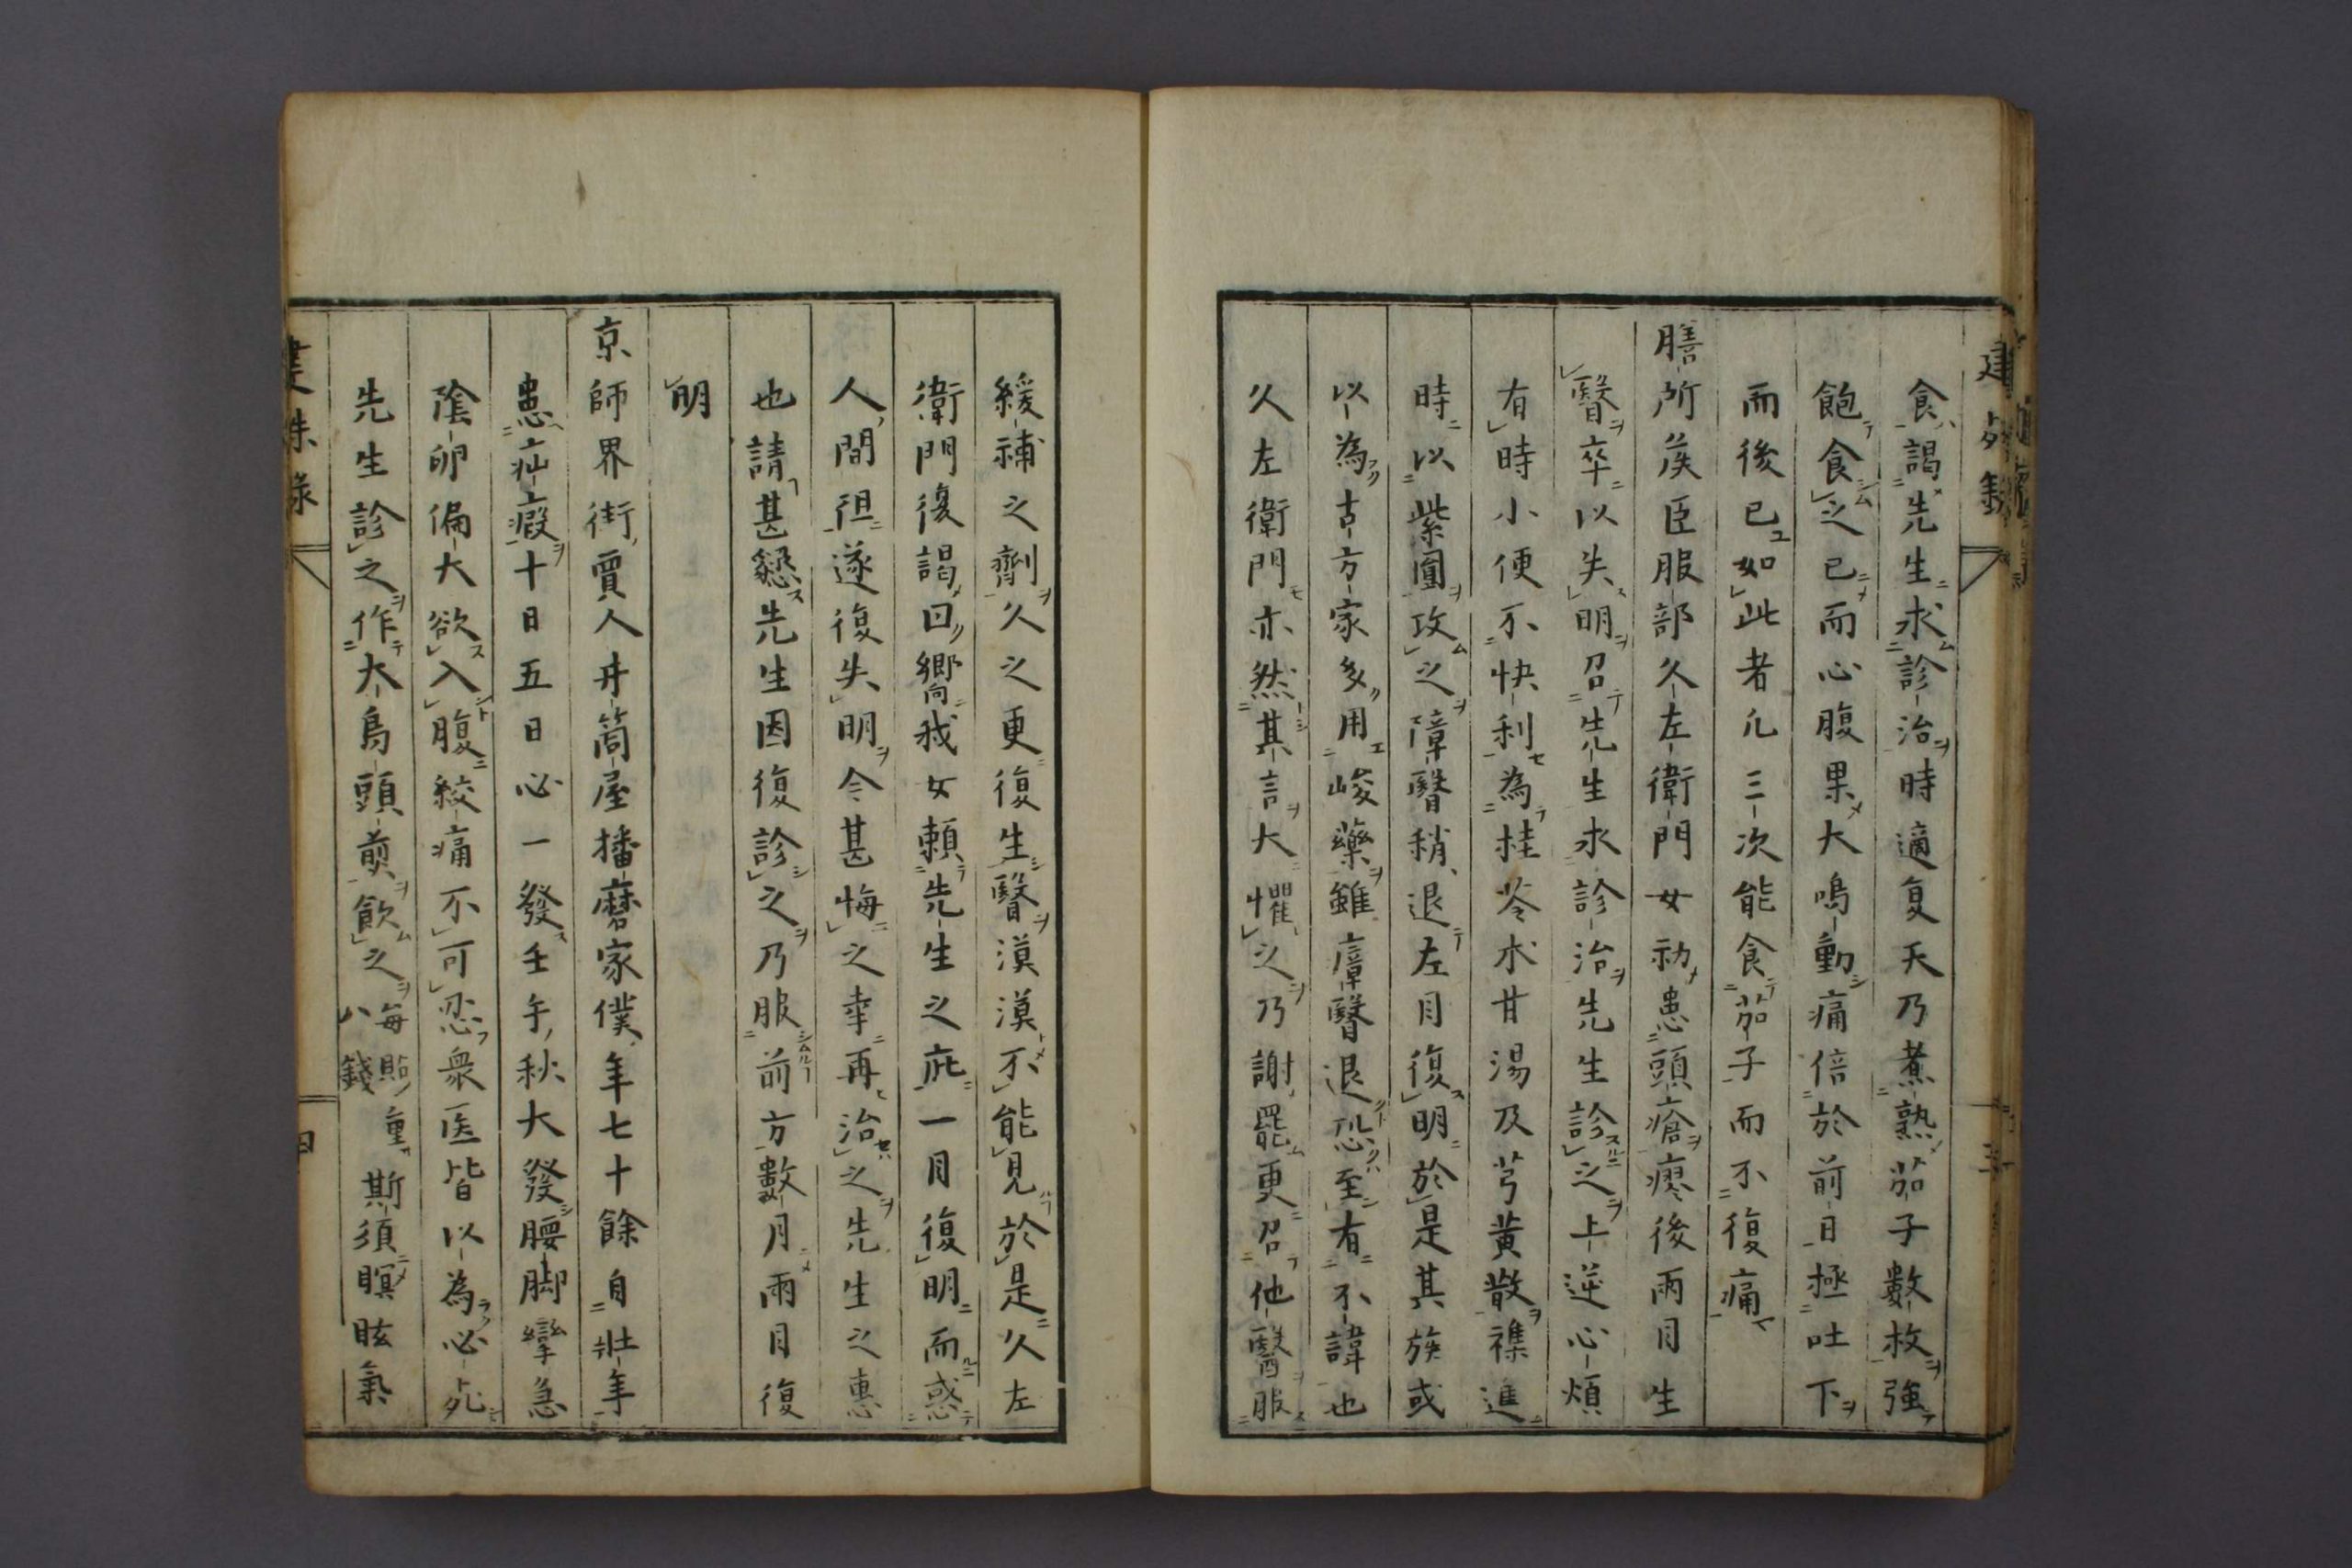 建殊録
食謁先生求診治時適夏天乃煮熟茄子數枚強
飽食之已而心腹果大鳴動痛倍於前日極吐下
而後已如此者凢三次能食茄子而不復痛
膳所矦臣服部久左衛門女初患頭瘡瘳後兩目生
瞖卒以失明召先生求診治先生診之上逆心煩
有時小便不快利為桂苓朮甘湯及芎黄散襍進
時以紫圓攻之障瞖稍退左目復明於是其族或
以為古方家多用峻藥雖瘴瞖退恐至有不諱也
久左衛門亦然其言大懼之乃謝罷更召他醫服
緩補之劑久之更復生瞖漠漠不能見於是久左
衛門復謁曰嚮我女賴先生之庇一目復明而惑
人間徂遂復失明今甚悔之幸再治之先生之惠
也請甚懇先生因復診之乃服前方數月兩目復
明
京師界街賈人井筒屋播磨家僕年七十餘自壯年
患疝瘕十日五日必一發壬午秋大發腰脚攣急
陰卵偏大欲入腹絞痛不可忍衆医皆以為必死
先生診之作大烏頭煎飲之每貼重八錢斯須瞑眩氣
建殊録 四